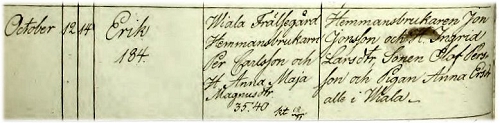 October 12 14 Erik
184.
Wala Frälsegård
Hemmansbrukarn
Per Carlsson och
H. Anna Maja
Magnusdtr
35.40
Hemmansbrukaren Jon
Jonsson och H. Ingrid
Larsdtr, Sonen Olof Pers-
son och Pigan Anna Ersdr
alle i Wala